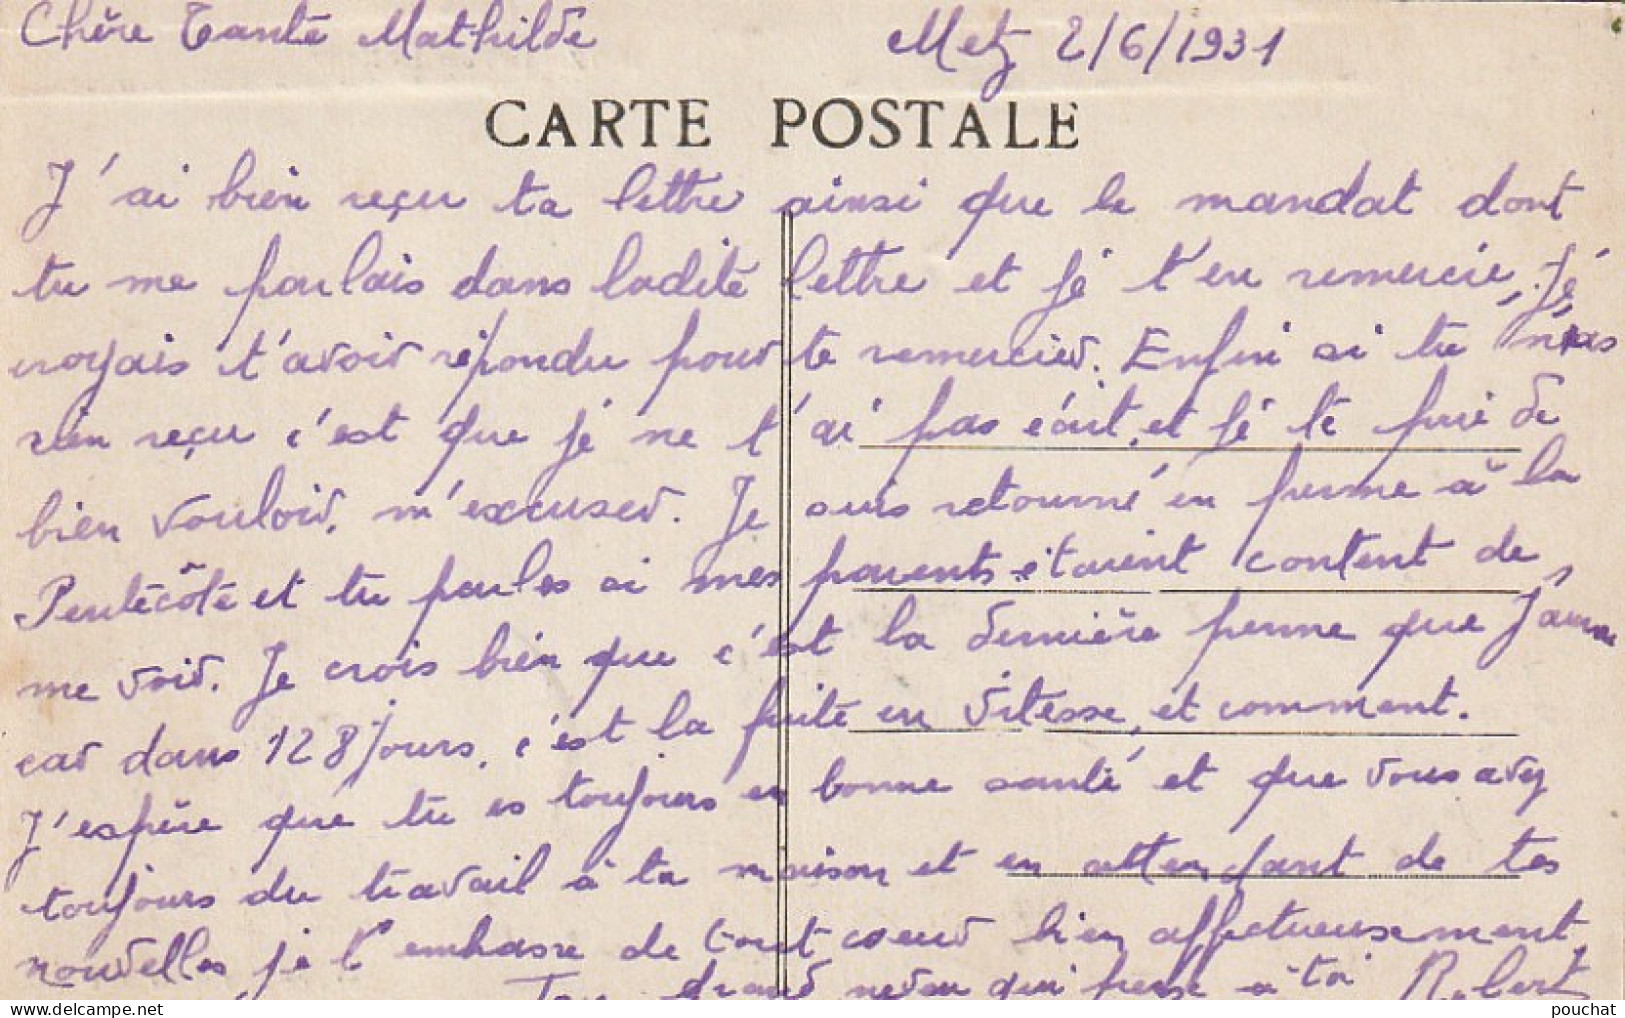 Chère Tante Mathilde Metz 2/6/1931
CARTE POSTALE
J'ai bien reçu ta lettre ainsi que le mandat dont
tu me parlais dans ladite lettre et je t'en remercie, Je
croyais t'avoir répondu pour te remercier. Enfin si tu n'as
rien reçu c'est que je ne t'ai pas écrit, et je te prie de
bien vouloir m'excuser. Je suis retourné en perme à la
Pentecôte et tu parles si mes parents étaient content de
me voir. Je crois bien que c'est la dernière perme que j'aurai
car dans 128 jours, c'est la fuite en vitesse, et comment.
J'espère que tu es toujours en bonne santé et que vous avez
toujours du travail à ta maison et en attendant de tes
nouvelles je t'embrasse de tout coeur bien affectueusement,
Ton grand neveu qui pense à toi Robert
www.delcampe.net pouchat